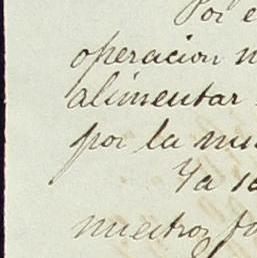 Por e
operacion n
alimentar
por la mu
Ya
nuestros fo